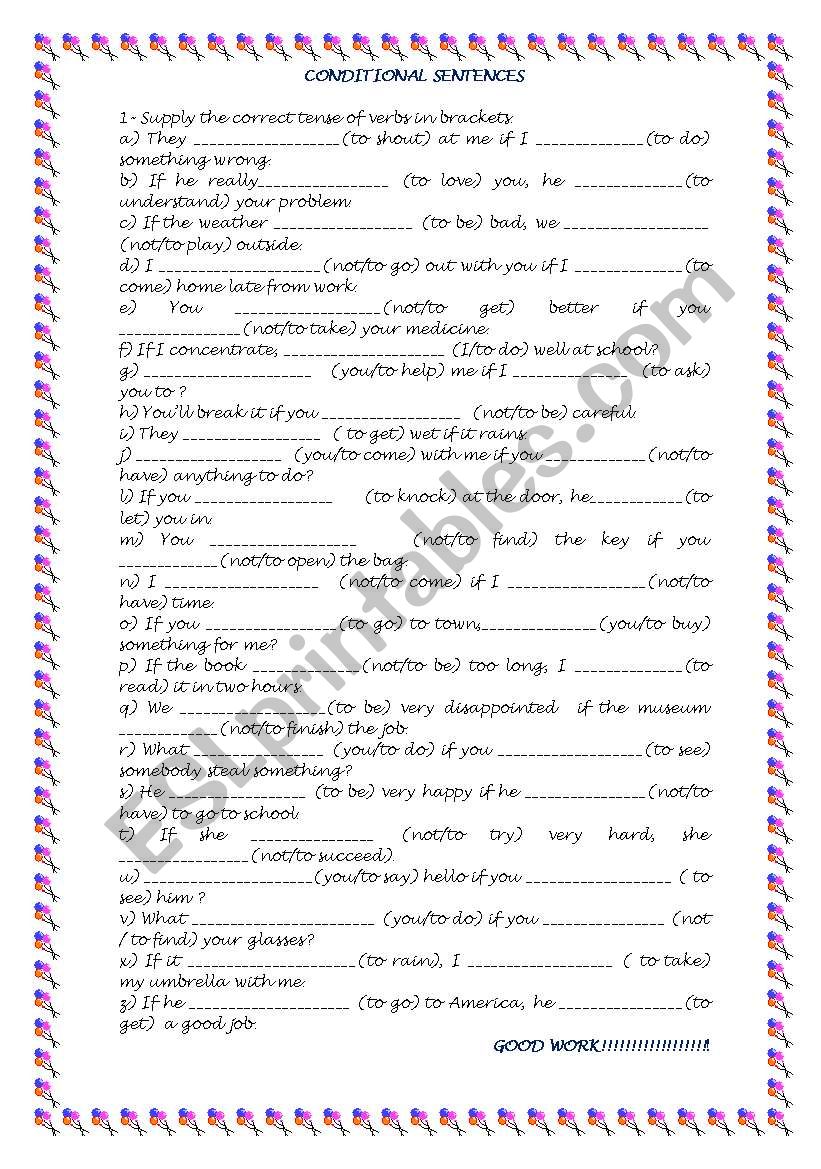 CONDITIONAL SENTENCES
1- Supply the correct tense of verbs in brackets.
a) They __________________(to shout) at me if I _____________(to do)
something wrong.
b) If he really________________ (to love) you, he _____________(to
understand) your problem
c) If the weather _________________ (to be) bad, we __________________
(not/to play) outside.
d) I ____________________(not/to go) out with you if I _____________(to
come) home late from work.
e) You __________________(not/to get) better if you
_______________(not/to take) your medicine.
f) If I concentrate, ____________________ (I/to do) well at school?
g) _____________________ (you/to help) me if I ______________ (to ask)
you to ?
h) You'll break it if you _________________ (not/to be) careful.
i) They _________________ ( to get) wet if it rains.
j) __________________ (you/to come) with me if you ____________(not/to
have) anything to do?
l) If you _________________ (to knock) at the door, he___________(to
let) you in.
m) You __________________ (not/to find) the key if you
____________(not/to open) the bag.
n) I ___________________ (not/to come) if I _________________(not/to
have) time.
o) If you ________________(to go) to town,______________(you/to buy)
something for me?
p) If the book _____________(not/to be) too long, I _____________(to
read) it in two hours.
q) We __________________(to be) very disappointed if the museum
____________(not/to finish) the job.
r) What ________________ (you/to do) if you __________________(to see)
somebody steal something?
s) He _________________ (to be) very happy if he _______________(not/to
have) to go to school.
t) If she _______________ (not/to try) very hard, she
________________(not/to succeed).
u) _____________________(you/to say) hello if you __________________ ( to
see) him ?
v) What _______________________ (you/to do) if you _______________ (not
/ to find) your glasses?
x) If it _____________________(to rain), I __________________ ( to take)
my umbrella with me.
z) If he ____________________ (to go) to America, he _______________(to
get) a good job.
GOOD WORK!!!!!!!!!!!!!!!!!!!
ESLprintables.com